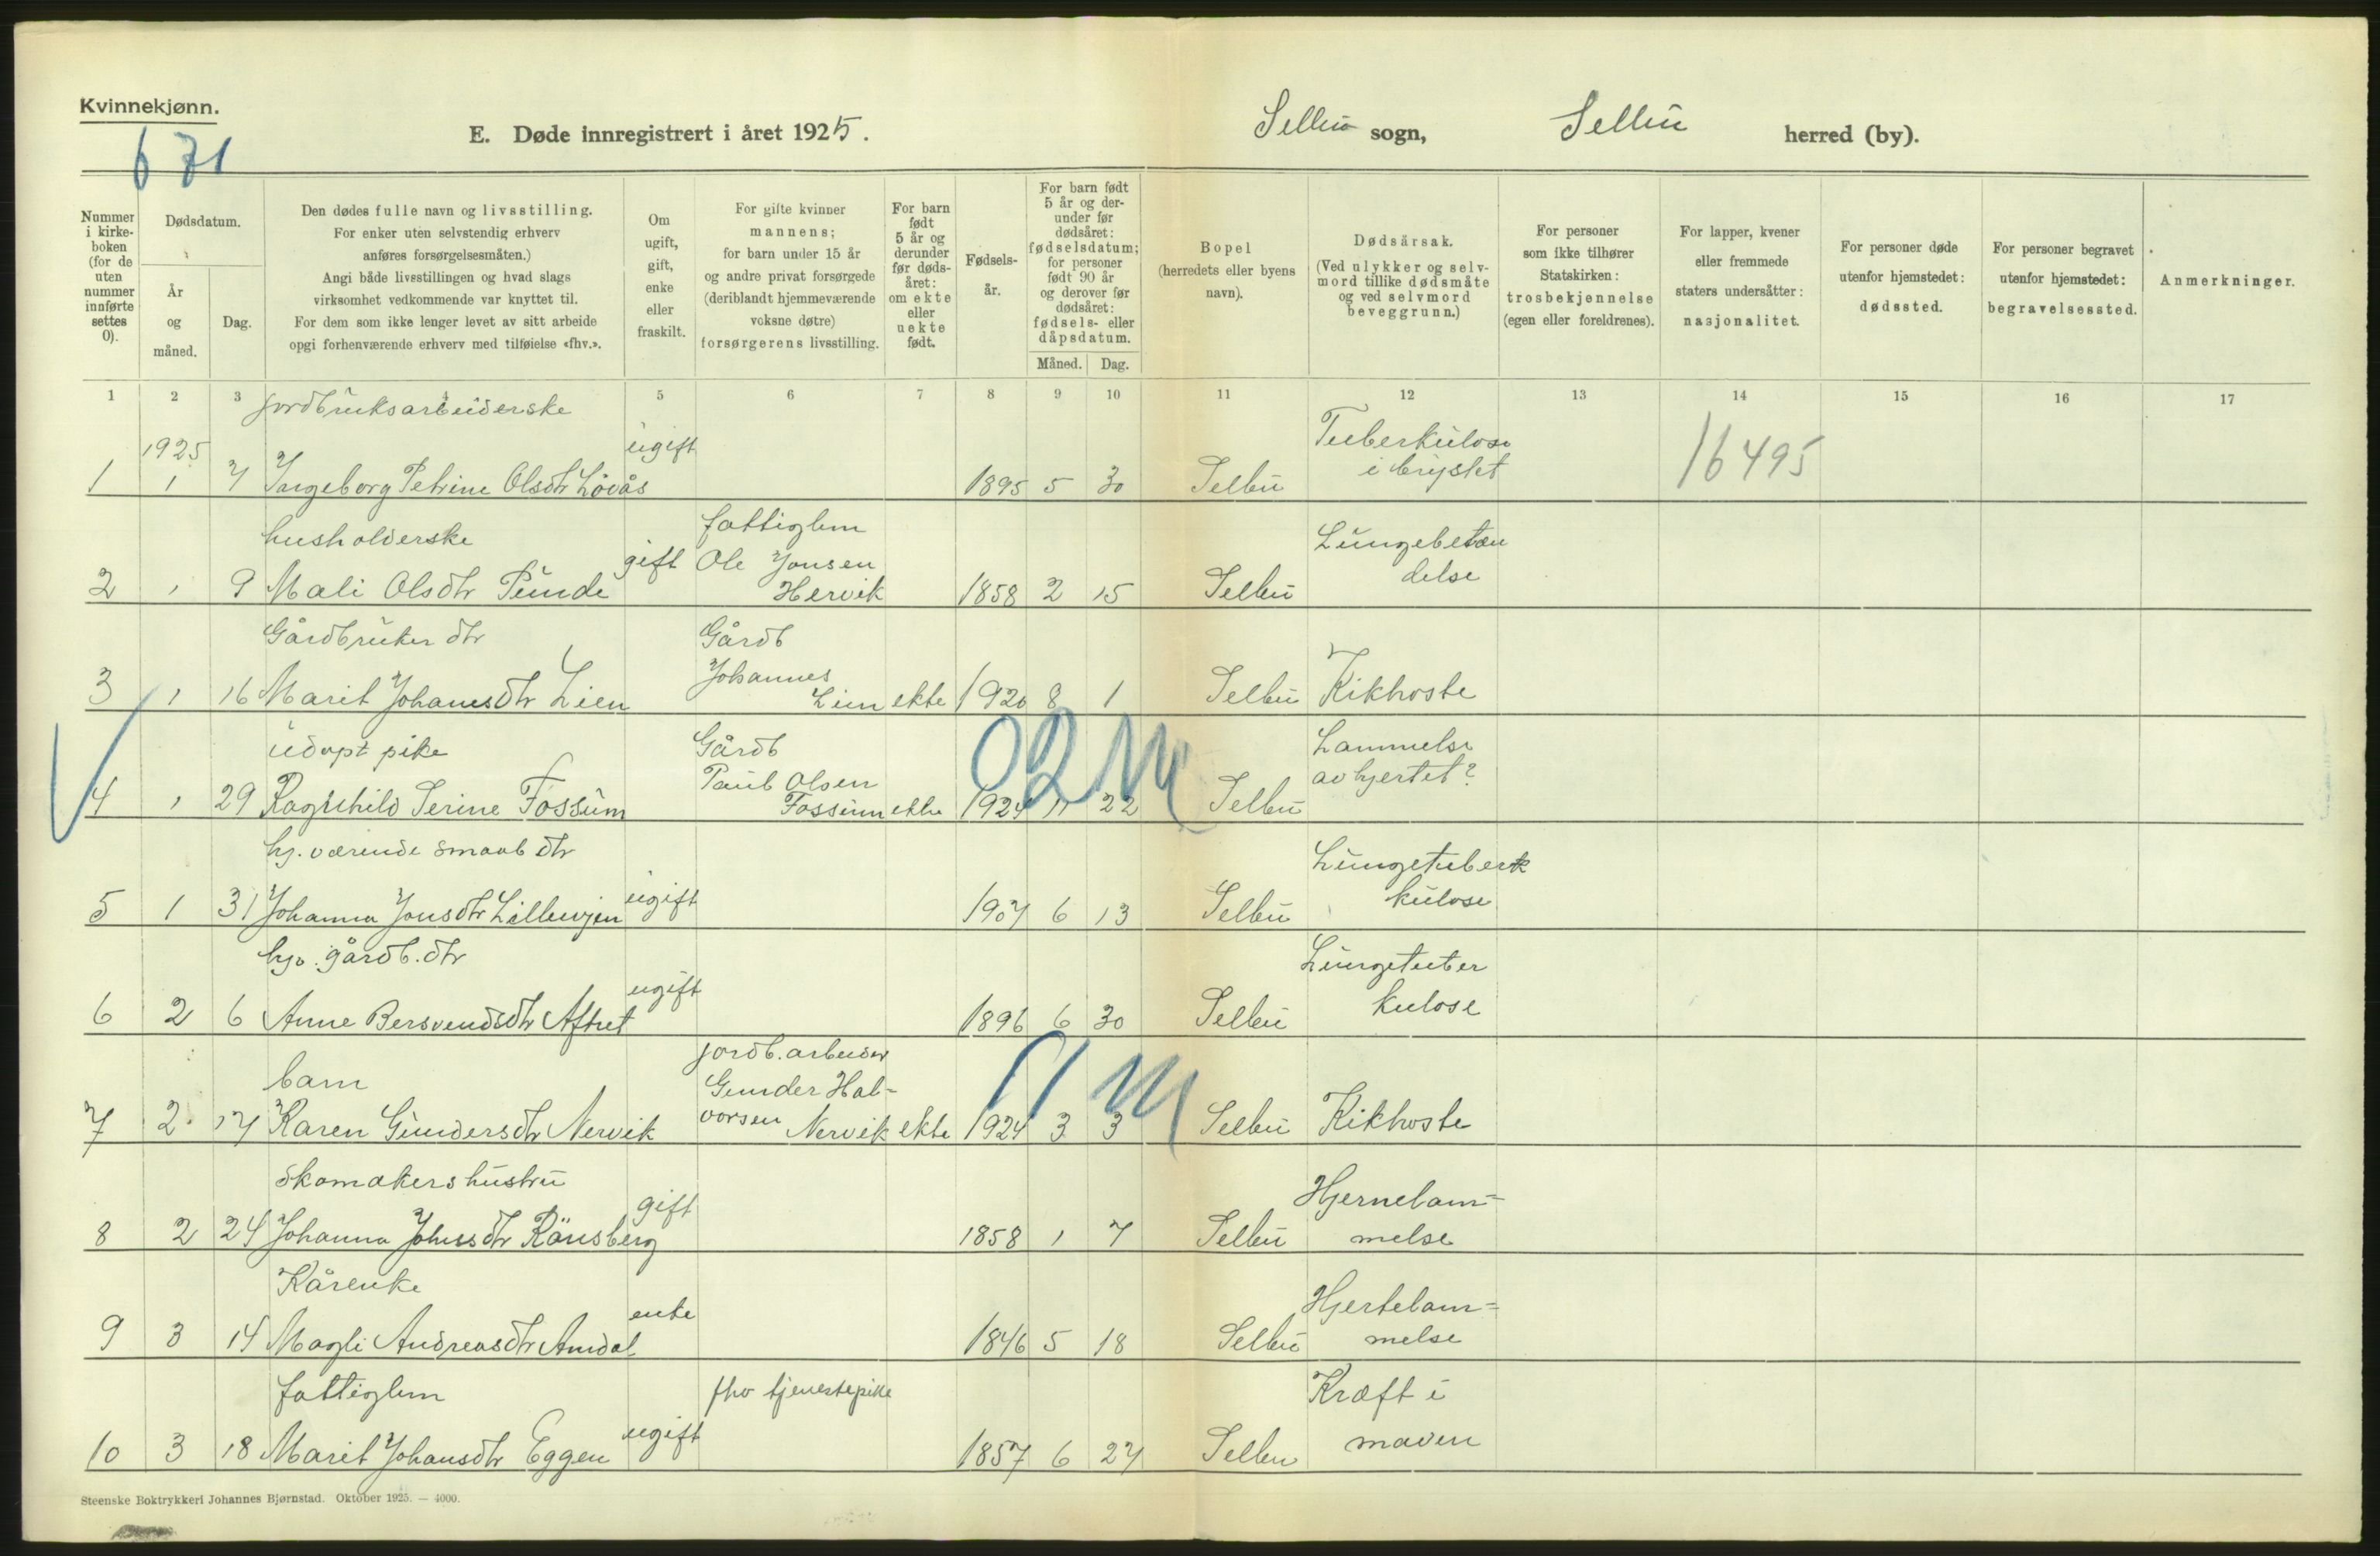 Kvinnekjønn.
671
E. Døde innregistrert i året 1925.
Selbu sogn,
Selbu
herred (by).
Nummer i kirke-boken (for de uten nummer innførte settes 0).
Dødsdatum.
År og måned.
Dag.
Den dødes fulle navn og livsstilling.
For enker uten selvstendig erhverv
anføres forsørgelsesmåten.)
Angi både livsstillingen og hvad slags
virksomhet vedkommende var knyttet til.
For dem som ikke lenger levet av sitt arbeide
opgi forhenværende erhverv med tilføielse «fhv.».
Om ugift, gift, enke eller fraskilt.
For gifte kvinner
mannens;
for barn under 15 år
og andre privat forsørgede
(deriblandt hjemmeværende
voksne døtre)
forsørgerens livsstilling.
For barn født 5 år og derunder før døds-året: om ekte eller uekte født.
Fødsels-år.
For barn født 5 år og der-under før dødsåret: fødselsdatum; for personer født 90 år og derover før dødsåret: fødsels- eller dåpsdatum.
Måned. Dag.
Bopel
(herredets eller byens
navn).
Dødsårsak.
(Ved ulykker og selv-
mord tillike dødsmåte
og ved selvmord
beveggrunn.)
For personer
som ikke tilhører
Statskirken:
trosbekjennelse
(egen eller foreldrenes).
For lapper, kvener
eller fremmede
staters undersåtter:
nasjonalitet.
For personer døde
utenfor hjemstedet:
dødssted.
For personer begravet
utenfor hjemstedet:
begravelsessted.
Anmerkninger.
1 2 3 4 5 6 7 8 9 10 11 12 13 14 15 16 17
jordbruksarbeiderske
1925 ugift Tuberkulose
1 1 7 Ingeborg Petrine Olsdtr Løvås 1895 5 30 Selbu i brystet 16495
husholderske fattiglem Lungebetæn
gift Ole Jonsen
2 1 9 Mali Olsdtr Punde Hervik 1858 2 15 Selbu delse
Gårdbruker dtr Gårdb
Johannes
3 1 16 Marit Johansdtr Lien Lien ekte 1920 8 1 Selbu Kikhoste
udøpt pike Gårdb 02 M Lammelse
Paul Olsen av hjertet?
4 1 29 Ragnhild Serine Fossum Fossum ekte 1924 11 22 Selbu
hj. værende smaab dtr Lungetuberk
5 1 31 Johanna Jonsdtr Lillevjen ugift 1907 6 13 Selbu kulose
hjv. gårdb. dtr Lungetuber
6 2 6 Anne Bersvendsdtr Aftret ugift 1896 6 30 Selbu kulose
jordb. arbeider 11 M
barn Gunder Hal-
7 2 17 Karen Gundersdtr Nervik vorsen Nervik ekte 1924 3 3 Selbu Kikhoste
Skomakershustru Hjernelam=
8 2 24 Johanna Johnsdtr Rånsberg gift 1858 1 7 Selbu melse
Kårenke Hjertelam=
9 3 14 Magli Andreasdtr Amdal enke 1846 5 18 Selbu melse
fattiglem fhv tjenestepike Kræft i
10 3 18 Marit Johansdtr Eggen ugift 1857 6 27 Selbu maven
Steenske Boktrykkeri Johannes Bjørnstad. Oktober 1925. — 4000.